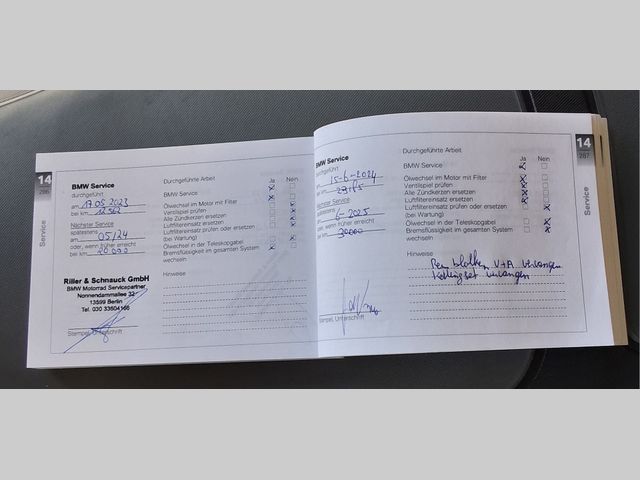 14
286
Service
BMW Service
durchgeführt
am 17.05.2023
bei km
Nächster Service
spätestens
am 05/24
oder, wenn früher erreicht
bei km 20 000
Riller & Schnauck GmbH
BMW Motorrad Servicepartner
Nonnendammallee 32
13599 Berlin
Tel. 030 33604166
Stempel, Unterschrift
Durchgeführte Arbeit
Ja Nein
BMW Service
Ölwechsel im Motor mit Filter
Ventilspiel prüfen
Alle Zündkerzen ersetzen
Luftfiltereinsatz ersetzen
Luftfiltereinsatz prüfen oder ersetzen
(bei Wartung)
Ölwechsel in der Teleskopgabel
Bremsflüssigkeit im gesamten System
wechseln
Hinweise
BMW Service
durchgeführt
am 15-6-2024
bei km
Nächster Service
spätestens
am 6-2025
oder, wenn früher erreicht
bei km 30000
Stempel, Unterschrift
Durchgeführte Arbeit
Ja Nein
BMW Service
Ölwechsel im Motor mit Filter
Ventilspiel prüfen
Alle Zündkerzen ersetzen
Luftfiltereinsatz ersetzen
Luftfiltereinsatz prüfen oder ersetzen
(bei Wartung)
Ölwechsel in der Teleskopgabel
Bremsflüssigkeit im gesamten System
wechseln
Hinweise
V+A
14
287
Service